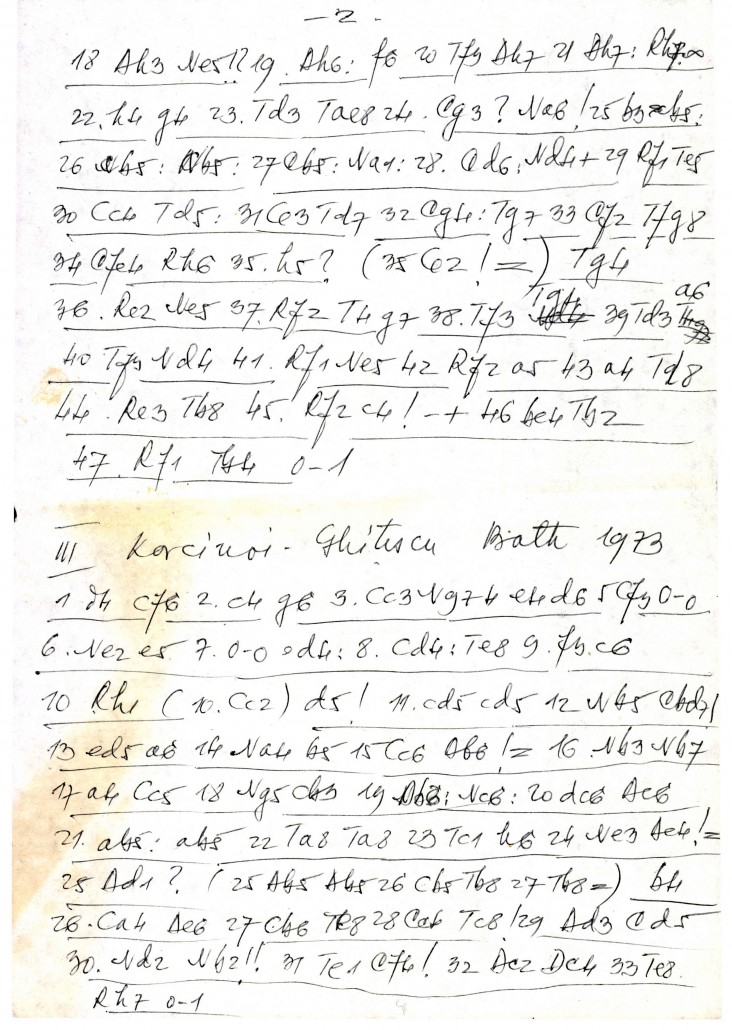 - 2 -
18 Ah3 Ne5!? 19. Ah6: f6 20 Tf3 Ah7 21 Ah7: Rh7:∞
22. h4 g4 23. Td3 Tae8 24. Cg3? Na6! 25 b3 b5:
26 Nb5: Nb5: 27 Cb5: Na1: 28. Cd6: Nd4+ 29 Rf1 Te5
30 Cc4 Td5: 31 Ce3 Td7 32 Cg4: Tg7 33 Cf2 Tfg8
34 Cfe4 Rh6 35. h5? (35 Ce2! =) Tg4
36. Re2 Ne5 37. Rf2 T4g7 38. Tf3 Tg4 39 Td3 a6
40 Tf3 Nd4 41. Rf1 Ne5 42 Rf2 a5 43 a4 Td8
44. Re3 Tb8 45. Rf2 c4! -+ 46 bc4 Tb2
47. Rf1 Tb4 0-1
III Korcinoi - Ghitescu Bath 1973
1 d4 Cf6 2. c4 g6 3. Cc3 Ng7 4 e4 d6 5 Cf3 0-0
6. Ne2 e5 7. 0-0 ed4: 8. Cd4: Te8 9. f3 c6
10 Rh1 (10. Cc2) d5! 11. cd5 cd5 12 Nb5 Cbd7!
13 ed5 a6 14 Na4 b5 15 Cc6 Ab6! = 16. Nb3 Nb7
17 a4 Cc5 18 Ng5 Cb3 19 Ab3: Nc6: 20 dc6 Ac6
21. ab5: ab5 22 Ta8 Ta8 23 Tc1 h6 24 Ne3 Ae4! =
25 Ad1? (25 Ab5 Ab5 26 Cb5 Tb8 27 Tb8 =) b4
26. Ca4 Ae6 27 Cb6 Tb8 28 Ca4 Tc8! 29 Ad3 Cd5
30. Nd2 Nb2!! 31 Te1 Cf4! 32 Ac2 Dc4 33 Te8
Rh7 0-1